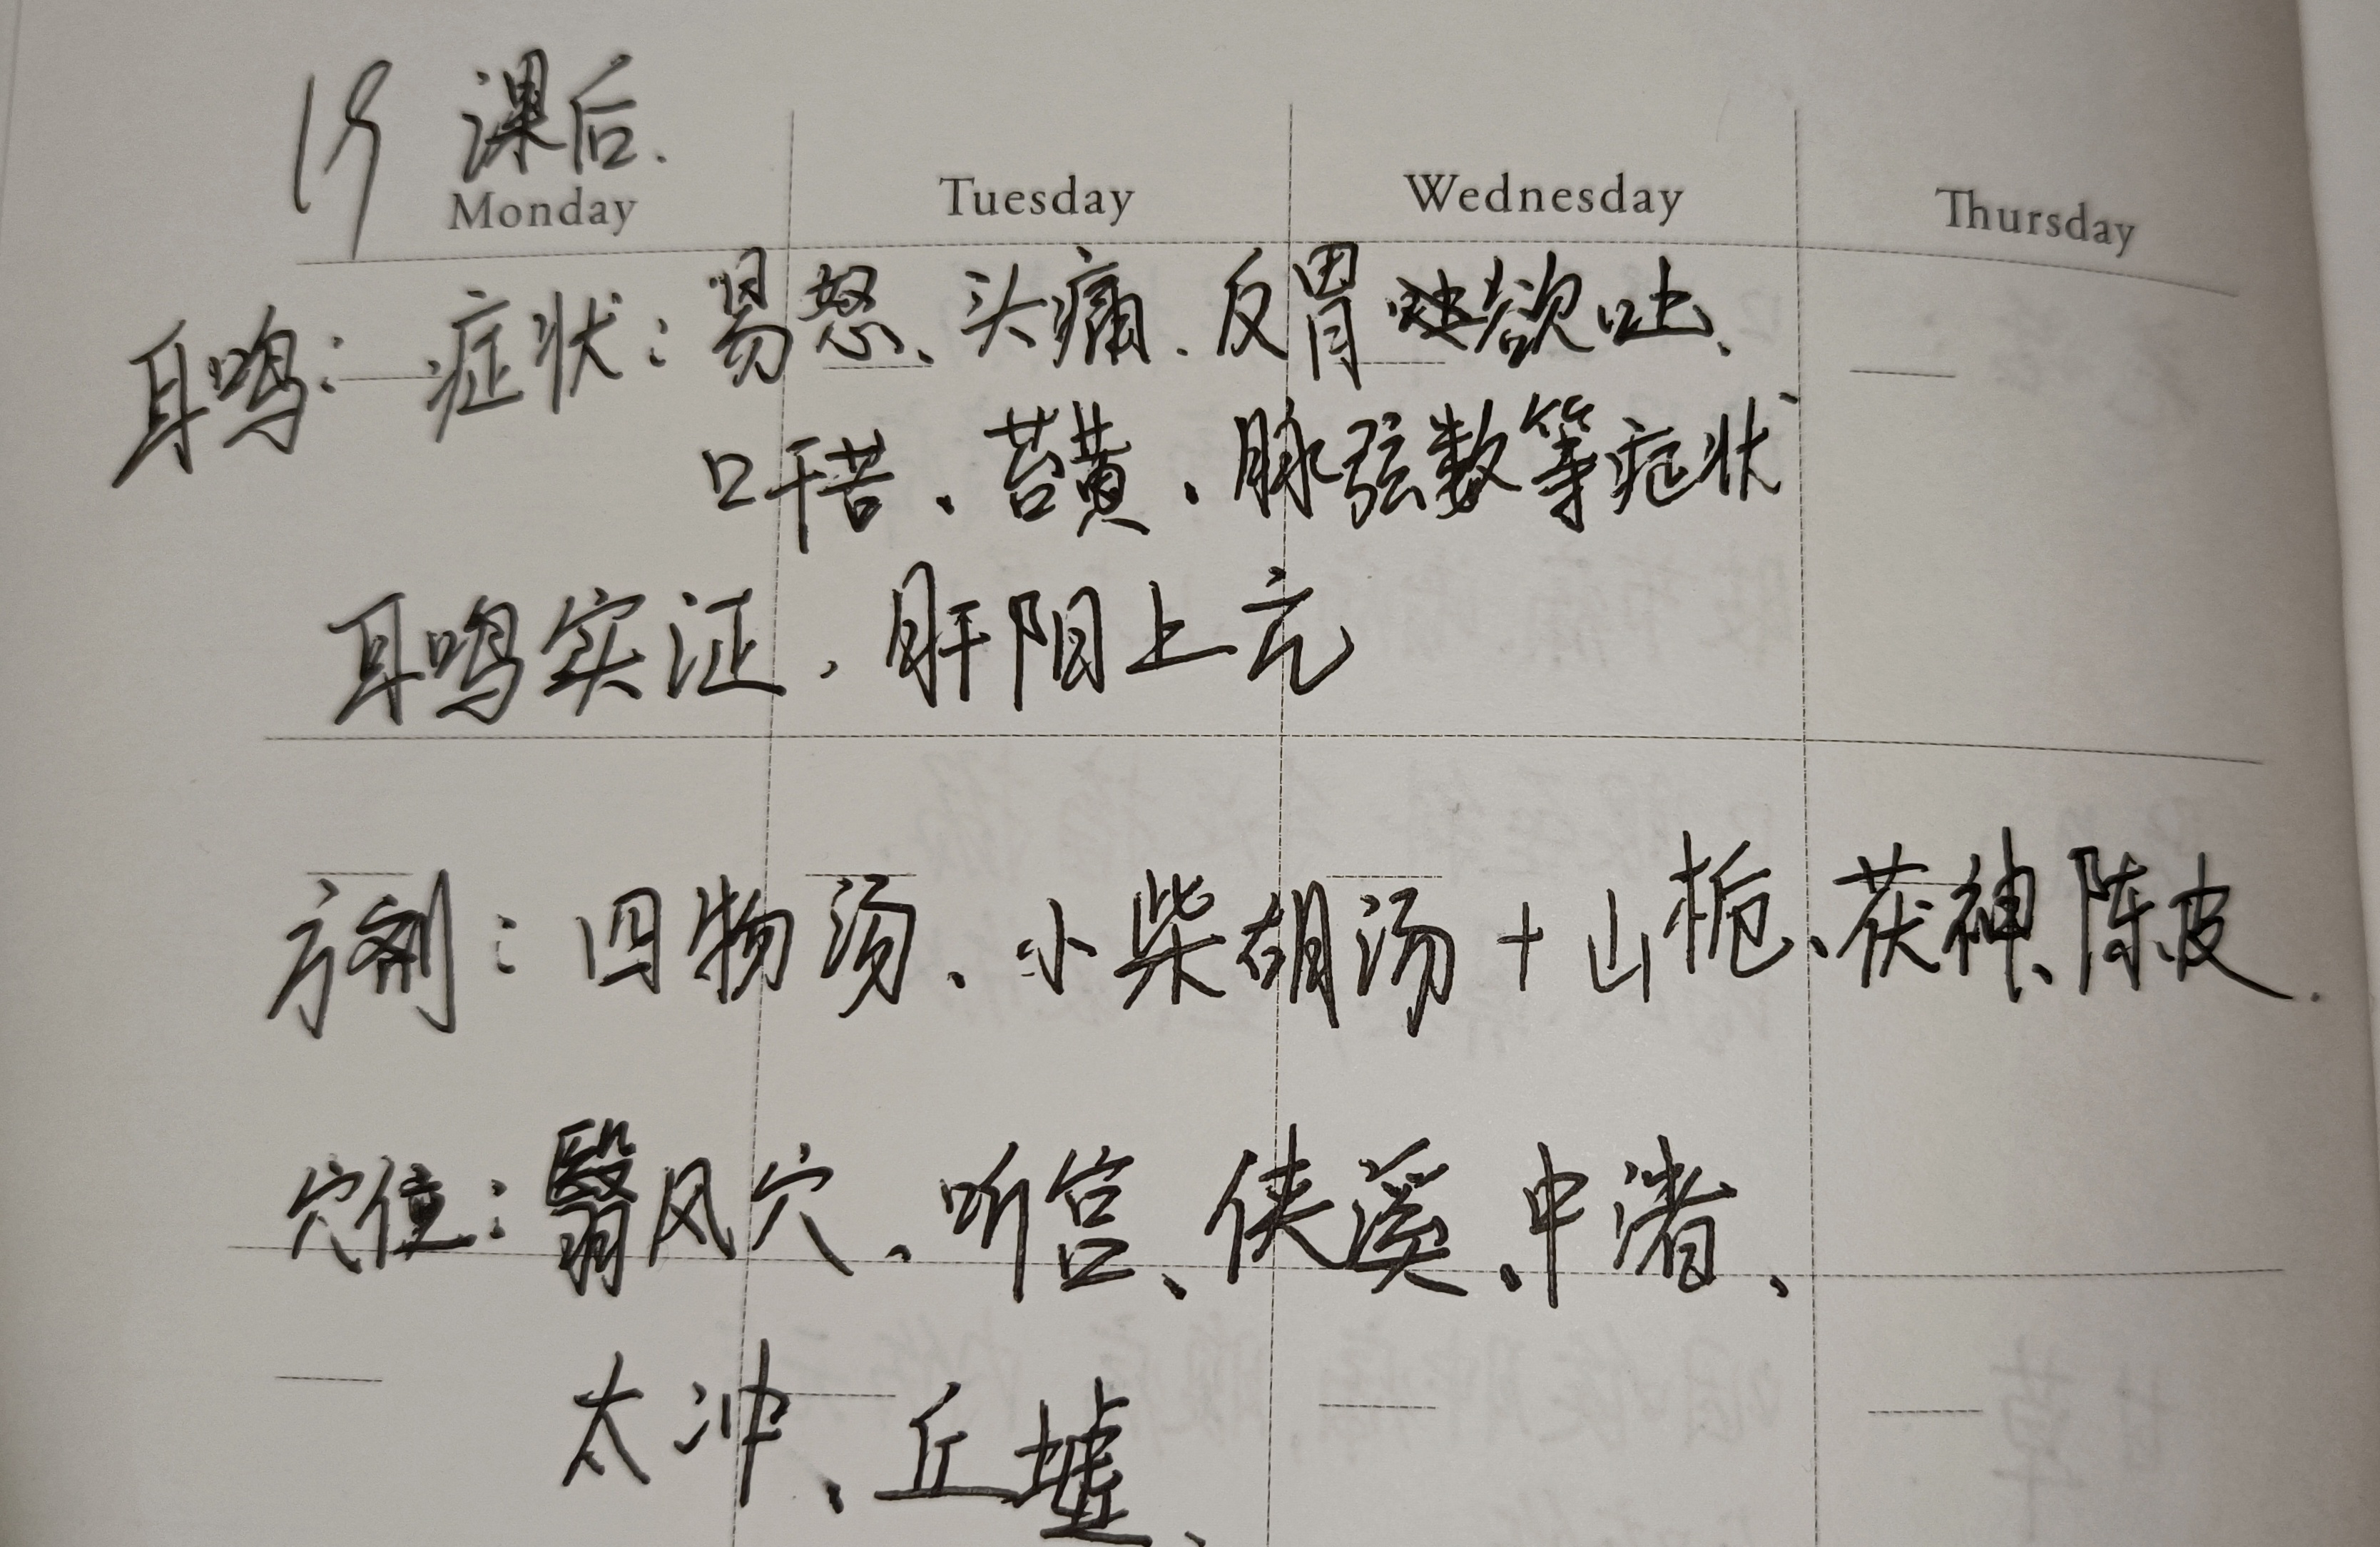 19 课后.
Monday Tuesday Wednesday Thursday
耳鸣：症状：易怒、头痛、反胃欲吐、
口干苦、苔黄、脉弦数等症状
耳鸣实证、肝阳上亢
方剂：四物汤、小柴胡汤+山栀、茯神、陈皮.
穴位：翳风穴、听宫、侠溪、中渚、
太冲、丘墟、